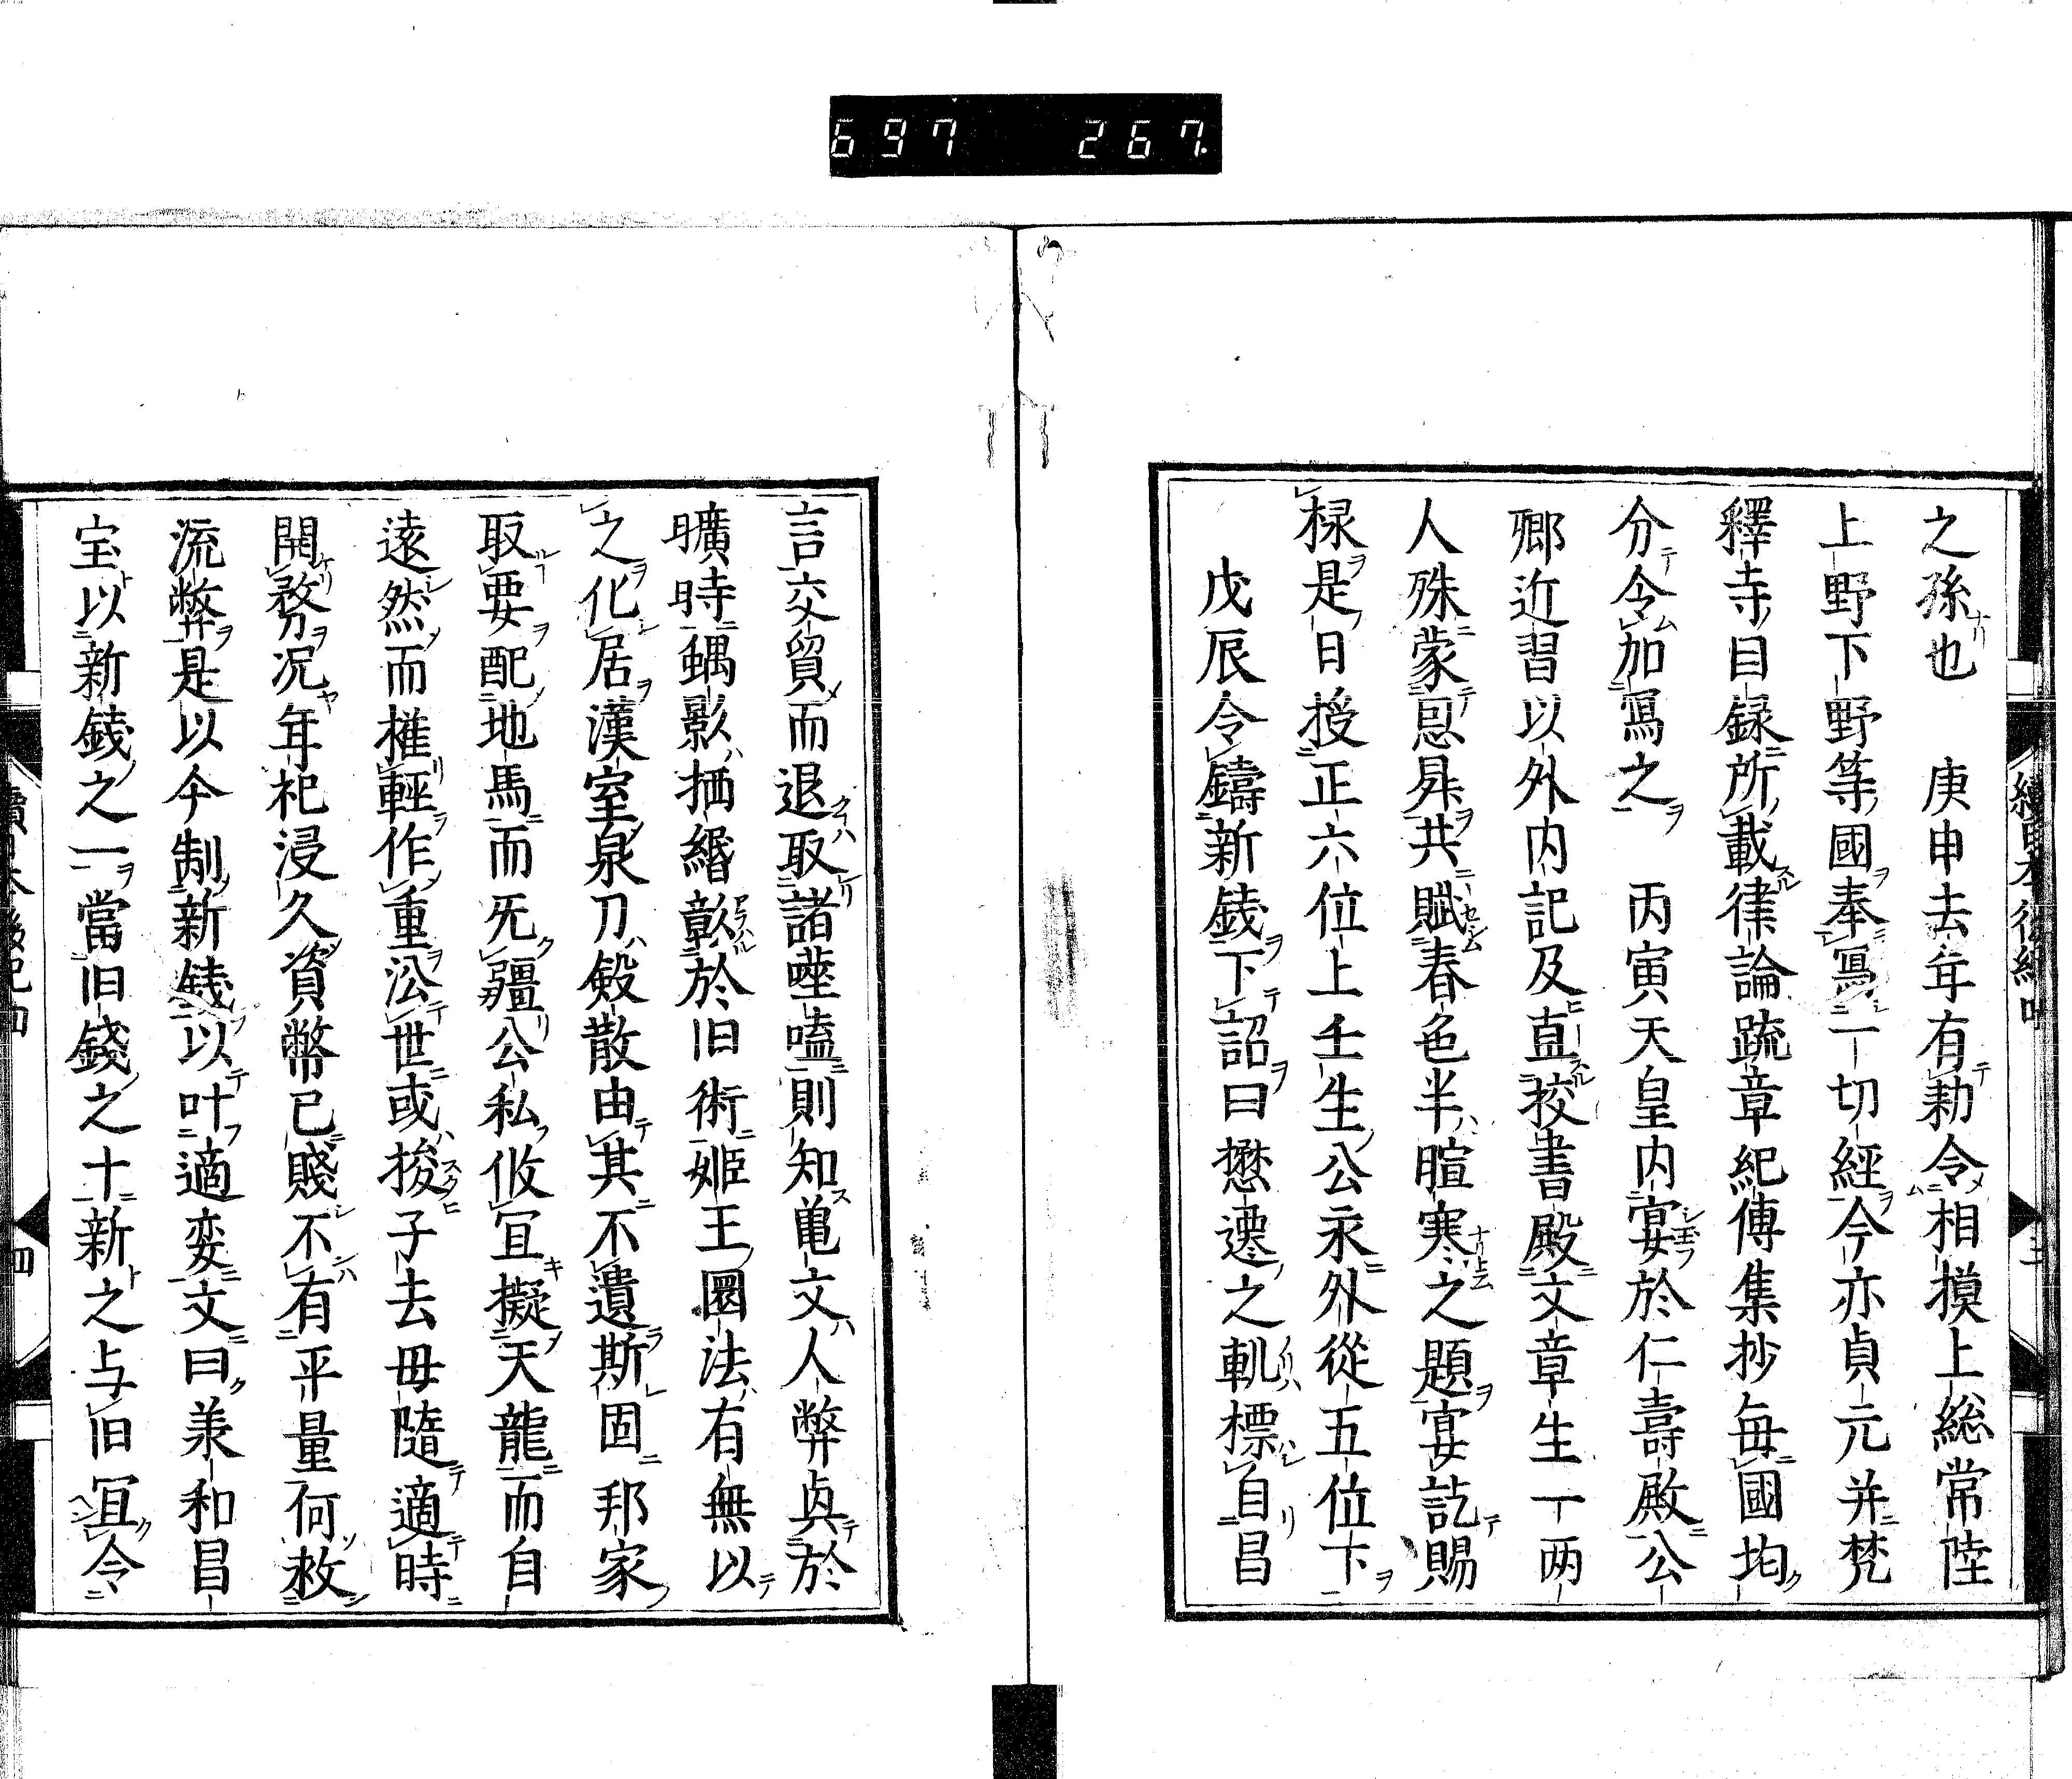 697 267
之孫也 庚申去年有勅令相摸上総常陸
上野下野等國奉寫一切經今亦貞元并梵
釋寺目録所載律論疏章紀傳集抄毎國均
分令加寫之 丙寅天皇内宴於仁壽殿公
卿近習以外内記及直挍書殿文章生一两
人殊蒙恩昇共賦春色半暄寒之題宴訖賜
禄是日授正六位上壬生公永外從五位下
戊辰令鑄新錢下詔曰懋遷之軌標自昌
言交貿而退取諸噬嗑則知亀文人弊貞於
曠時蝺影栖緡彰於旧術姫王圜法有無以
之化居漢室泉刀殽散由其不遺斯固邦家
取要配地馬而旡疆公私攸冝擬天龍而自
遠然而権輕作重㳂世或拨子去毋隨適時
開務况年祀浸久資幣已賤不有平量何救
流弊是以今制新錢以叶適変文曰羕和昌
宝以新錢之一當旧錢之十新之与旧冝令
續日本後紀四 三
續日本後紀四 四